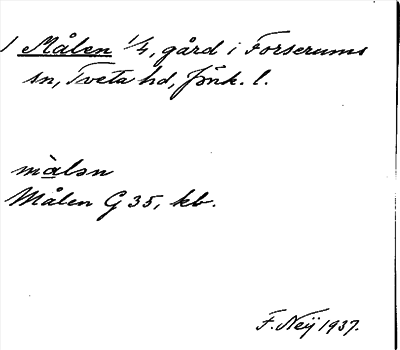 / Målen 1/4, gård i Forserums
sn, Tveta hd, Jönk. l.
màlsn
Målen G 35, kb.
F. Neÿ 1937.